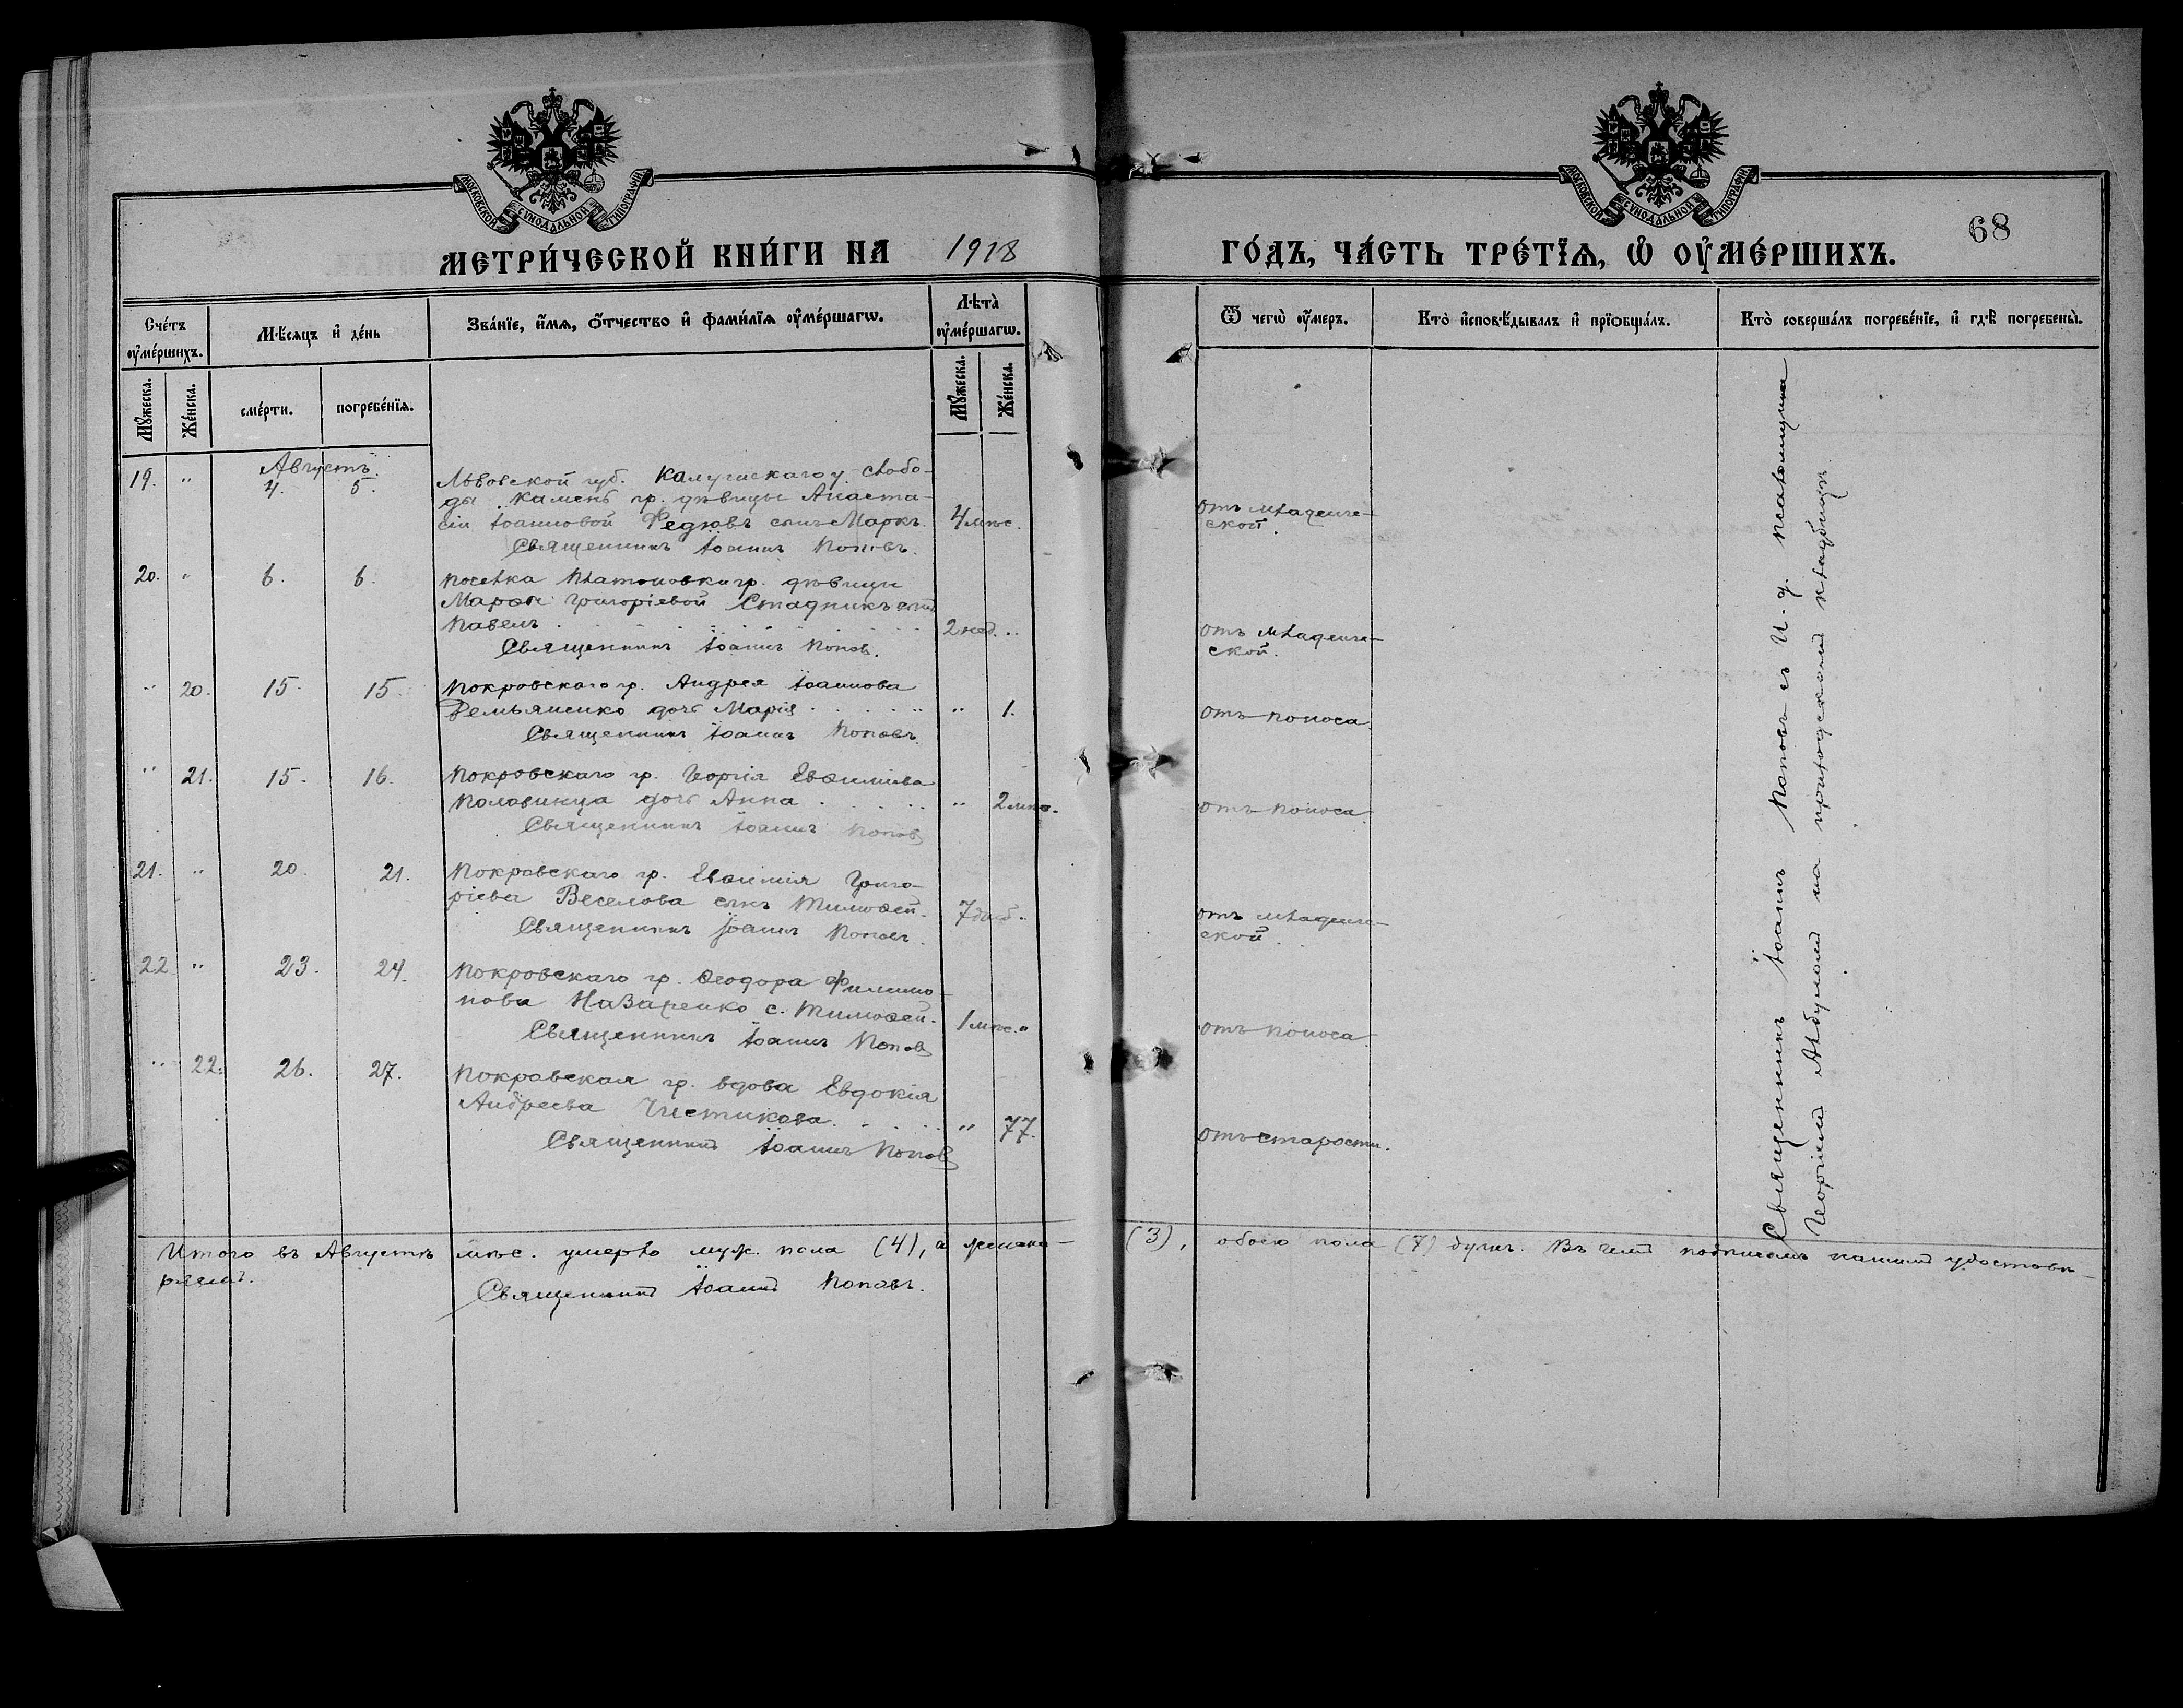 МОСКОВСКОЙ СѴНОДАЛЬНОЙ ТИПОГРАФІИ
МОСКОВСКОЙ СѴНОДАЛЬНОЙ ТИПОГРАФІИ
68
МЕТРИ́ЧЕСКОЙ КНИ́ГИ НА 1918 ГО́ДЪ, ЧА́СТЬ ТРЕ́ТЇѦ, Ѡ ОУ҆МЕ́РШИХЪ.
Сче́тъ оу҆ме́ршихъ.
Мѣ́сяцъ и҆ де́нь
Зва́нїе, и҆́мѧ, ѻ҆́тчество и҆ фами́лїѧ оу҆ме́ршагѡ.
Лѣта̀ оу҆ме́ршагѡ.
Ѿ чегѡ̀ оу҆́меръ.
Кто̀ и҆сповѣ́дывалъ и҆ прїѡбща́лъ.
Кто̀ соверша́лъ погребе́нїе, и҆ гдѣ̀ погребены̀.
Мꙋ́жеска.
Же́нска.
сме́рти.
погребе́нїѧ.
Мꙋ́жеска.
Же́нска.
Августъ.
19. " 4. 5. Львовской губ. Калушскаго у. слобо-
ды Камень гр. дѣвицы Анаста-
сіи Іоанновой Федювъ сынъ Маркъ. 4 мѣс. отъ младенче-
ской.
Священникъ Іоаннъ Поповъ.
20. " 6. 6. поселка Платоновки гр. дѣвицы
Марѳы Григоріевой Стадникъ сынъ
Павелъ 2 нед. " отъ младенче-
ской.
Священникъ Іоаннъ Попов.
" 20. 15. 15. Покровскаго гр. Андрея Іоаннова
Демьяненко дочь Марія " 1. отъ поноса
Священникъ Іоаннъ Поповъ.
" 21. 15. 16. Покровскаго гр. Георгія Евѳиміева
Половинца дочь Анна " 2 мѣс. отъ поноса
Священникъ Іоаннъ Поповъ
21. " 20. 21. Покровскаго гр. Евѳимія Григо-
ріева Веселова сынъ Тимоѳей. 7 дней. отъ младенче-
ской.
Священникъ Іоаннъ Поповъ.
22 " 23. 24. Покровскаго гр. Ѳеодора Филимо-
нова Назаренко с. Тимоѳей. 1 мѣс. " отъ поноса
Священникъ Іоаннъ Поповъ
" 22. 26. 27. Покровская гр. вдова Евдокія
Андреева Чистикова " 77. отъ старости.
Священникъ Іоаннъ Поповъ
Священникъ Іоаннъ Поповъ съ И. д. псаломщика
Георгіемъ на приходскомъ кладбищѣ.
Итого въ Августѣ мѣс. умерло муж. пола (4), а женска- (3), обоего пола (7) душъ. Въ чемъ подписомъ нашимъ удостовѣ-
ряемъ.
Священникъ Іоаннъ Поповъ.